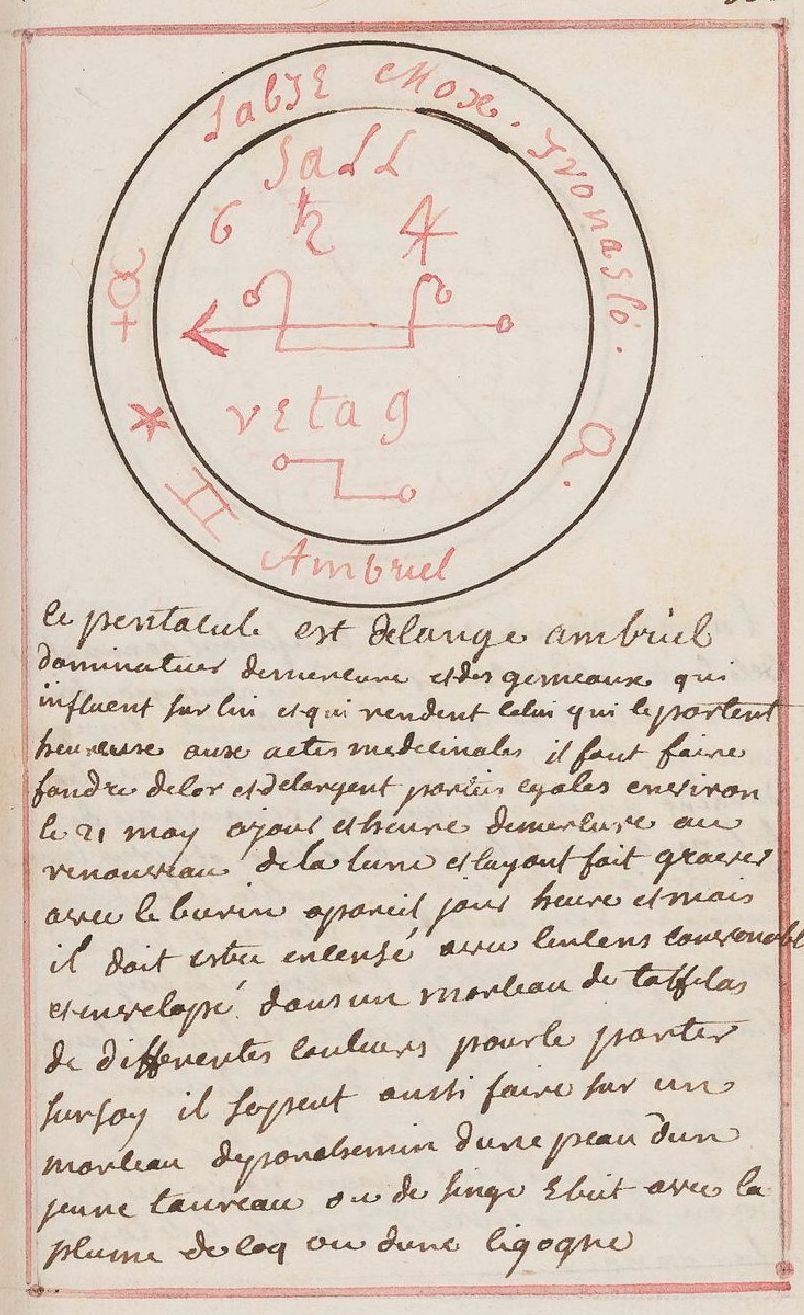 Jabsε Mox. Jvonasló.
Sall
6 ♄ 4
vεtag
Ambriel
Ce pentacule est delange ambriel
dominateur demercure etdes gemeaux qui
influent sur lui et qui rendent celui qui le portent
heureuse aux actes medecinales il faut faire
fondre delor et delargent parties egalles environ
le 21 may ajour et heure demercure au
renouveau dela lune et layant fait graver
avec le burin apareil jour heure et mois
il doit estre encensé avec lencens convenable
et envelopé dans un morceau de taffetas
de differentes couleurs pour le porter
sur soy il sepeut aussi faire sur un
morceau deparchemin dune peau dun
jeune taureau ou de singe avec la
plume de coq ou dune cigogne